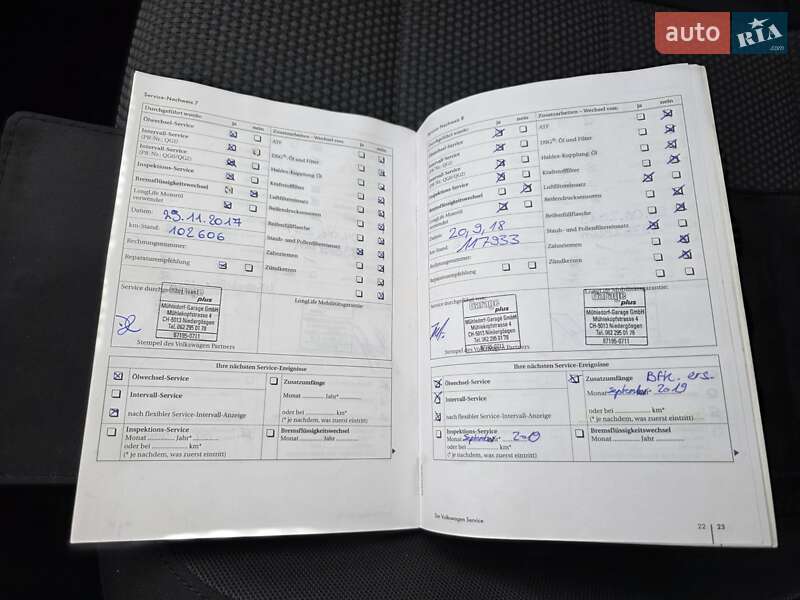 auto RIA
.com
Service-Nachweis 7
Durchgeführt wurde: ja nein
Ölwechsel-Service
Intervall-Service
(PR-Nr.: QG1)
Intervall-Service
(PR-Nr.: QG0/QG2)
Inspektions-Service
Bremsflüssigkeitswechsel
LongLife Motoröl
verwendet
Datum: 29.11.2017
km-Stand: 102606
Rechnungsnummer:
Reparaturempfehlung
Zusatzarbeiten – Wechsel von: ja nein
ATF
DSG®: Öl und Filter
Haldex-Kupplung: Öl
Kraftstofffilter
Luftfiltereinsatz
Reifendrucksensoren
Reifenfüllflasche
Staub- und Pollenfiltereinsatz
Zahnriemen
Zündkerzen
Service durchgeführt
LongLife Mobilitätsgarantie:
garage plus
Mühledorf-Garage GmbH
Mühlekopfstrasse 4
CH-5013 Niedergösgen
Tel. 062 295 01 78
87195-0711
Stempel des Volkswagen Partners
Ihre nächsten Service-Ereignisse
Ölwechsel-Service
Intervall-Service
nach flexibler Service-Intervall-Anzeige
Zusatzumfänge
Monat Jahr*
oder bei km*
(* je nachdem, was zuerst eintritt)
Inspektions-Service
Monat Jahr*
oder bei km*
(* je nachdem, was zuerst eintritt)
Bremsflüssigkeitswechsel
Monat Jahr*
oder bei km*
(* je nachdem, was zuerst eintritt)
Service-Nachweis 8
Durchgeführt wurde: ja nein
Ölwechsel-Service
Intervall-Service
(PR-Nr.: QG1)
Intervall-Service
(PR-Nr.: QG0/QG2)
Inspektions-Service
Bremsflüssigkeitswechsel
LongLife Motoröl
verwendet
Datum: 20.9.18
km-Stand: 117933
Rechnungsnummer:
Reparaturempfehlung
Zusatzarbeiten – Wechsel von: ja nein
ATF
DSG®: Öl und Filter
Haldex-Kupplung: Öl
Kraftstofffilter
Luftfiltereinsatz
Reifendrucksensoren
Reifenfüllflasche
Staub- und Pollenfiltereinsatz
Zahnriemen
Zündkerzen
Service durchgeführt
LongLife Mobilitätsgarantie:
garage plus
Mühledorf-Garage GmbH
Mühlekopfstrasse 4
CH-5013 Niedergösgen
Tel. 062 295 01 78
87195-0711
garage plus
Mühledorf-Garage GmbH
Mühlekopfstrasse 4
CH-5013 Niedergösgen
Tel. 062 295 01 78
87195-0711
Stempel des Volkswagen Partners
Ihre nächsten Service-Ereignisse
Ölwechsel-Service
Intervall-Service
nach flexibler Service-Intervall-Anzeige
Zusatzumfänge Bfk. ers.
Monat September 2019
oder bei km*
(* je nachdem, was zuerst eintritt)
Inspektions-Service
Monat September 2019
oder bei km*
(* je nachdem, was zuerst eintritt)
Bremsflüssigkeitswechsel
Monat Jahr*
oder bei km*
(* je nachdem, was zuerst eintritt)
Ihr Volkswagen Service
22 23